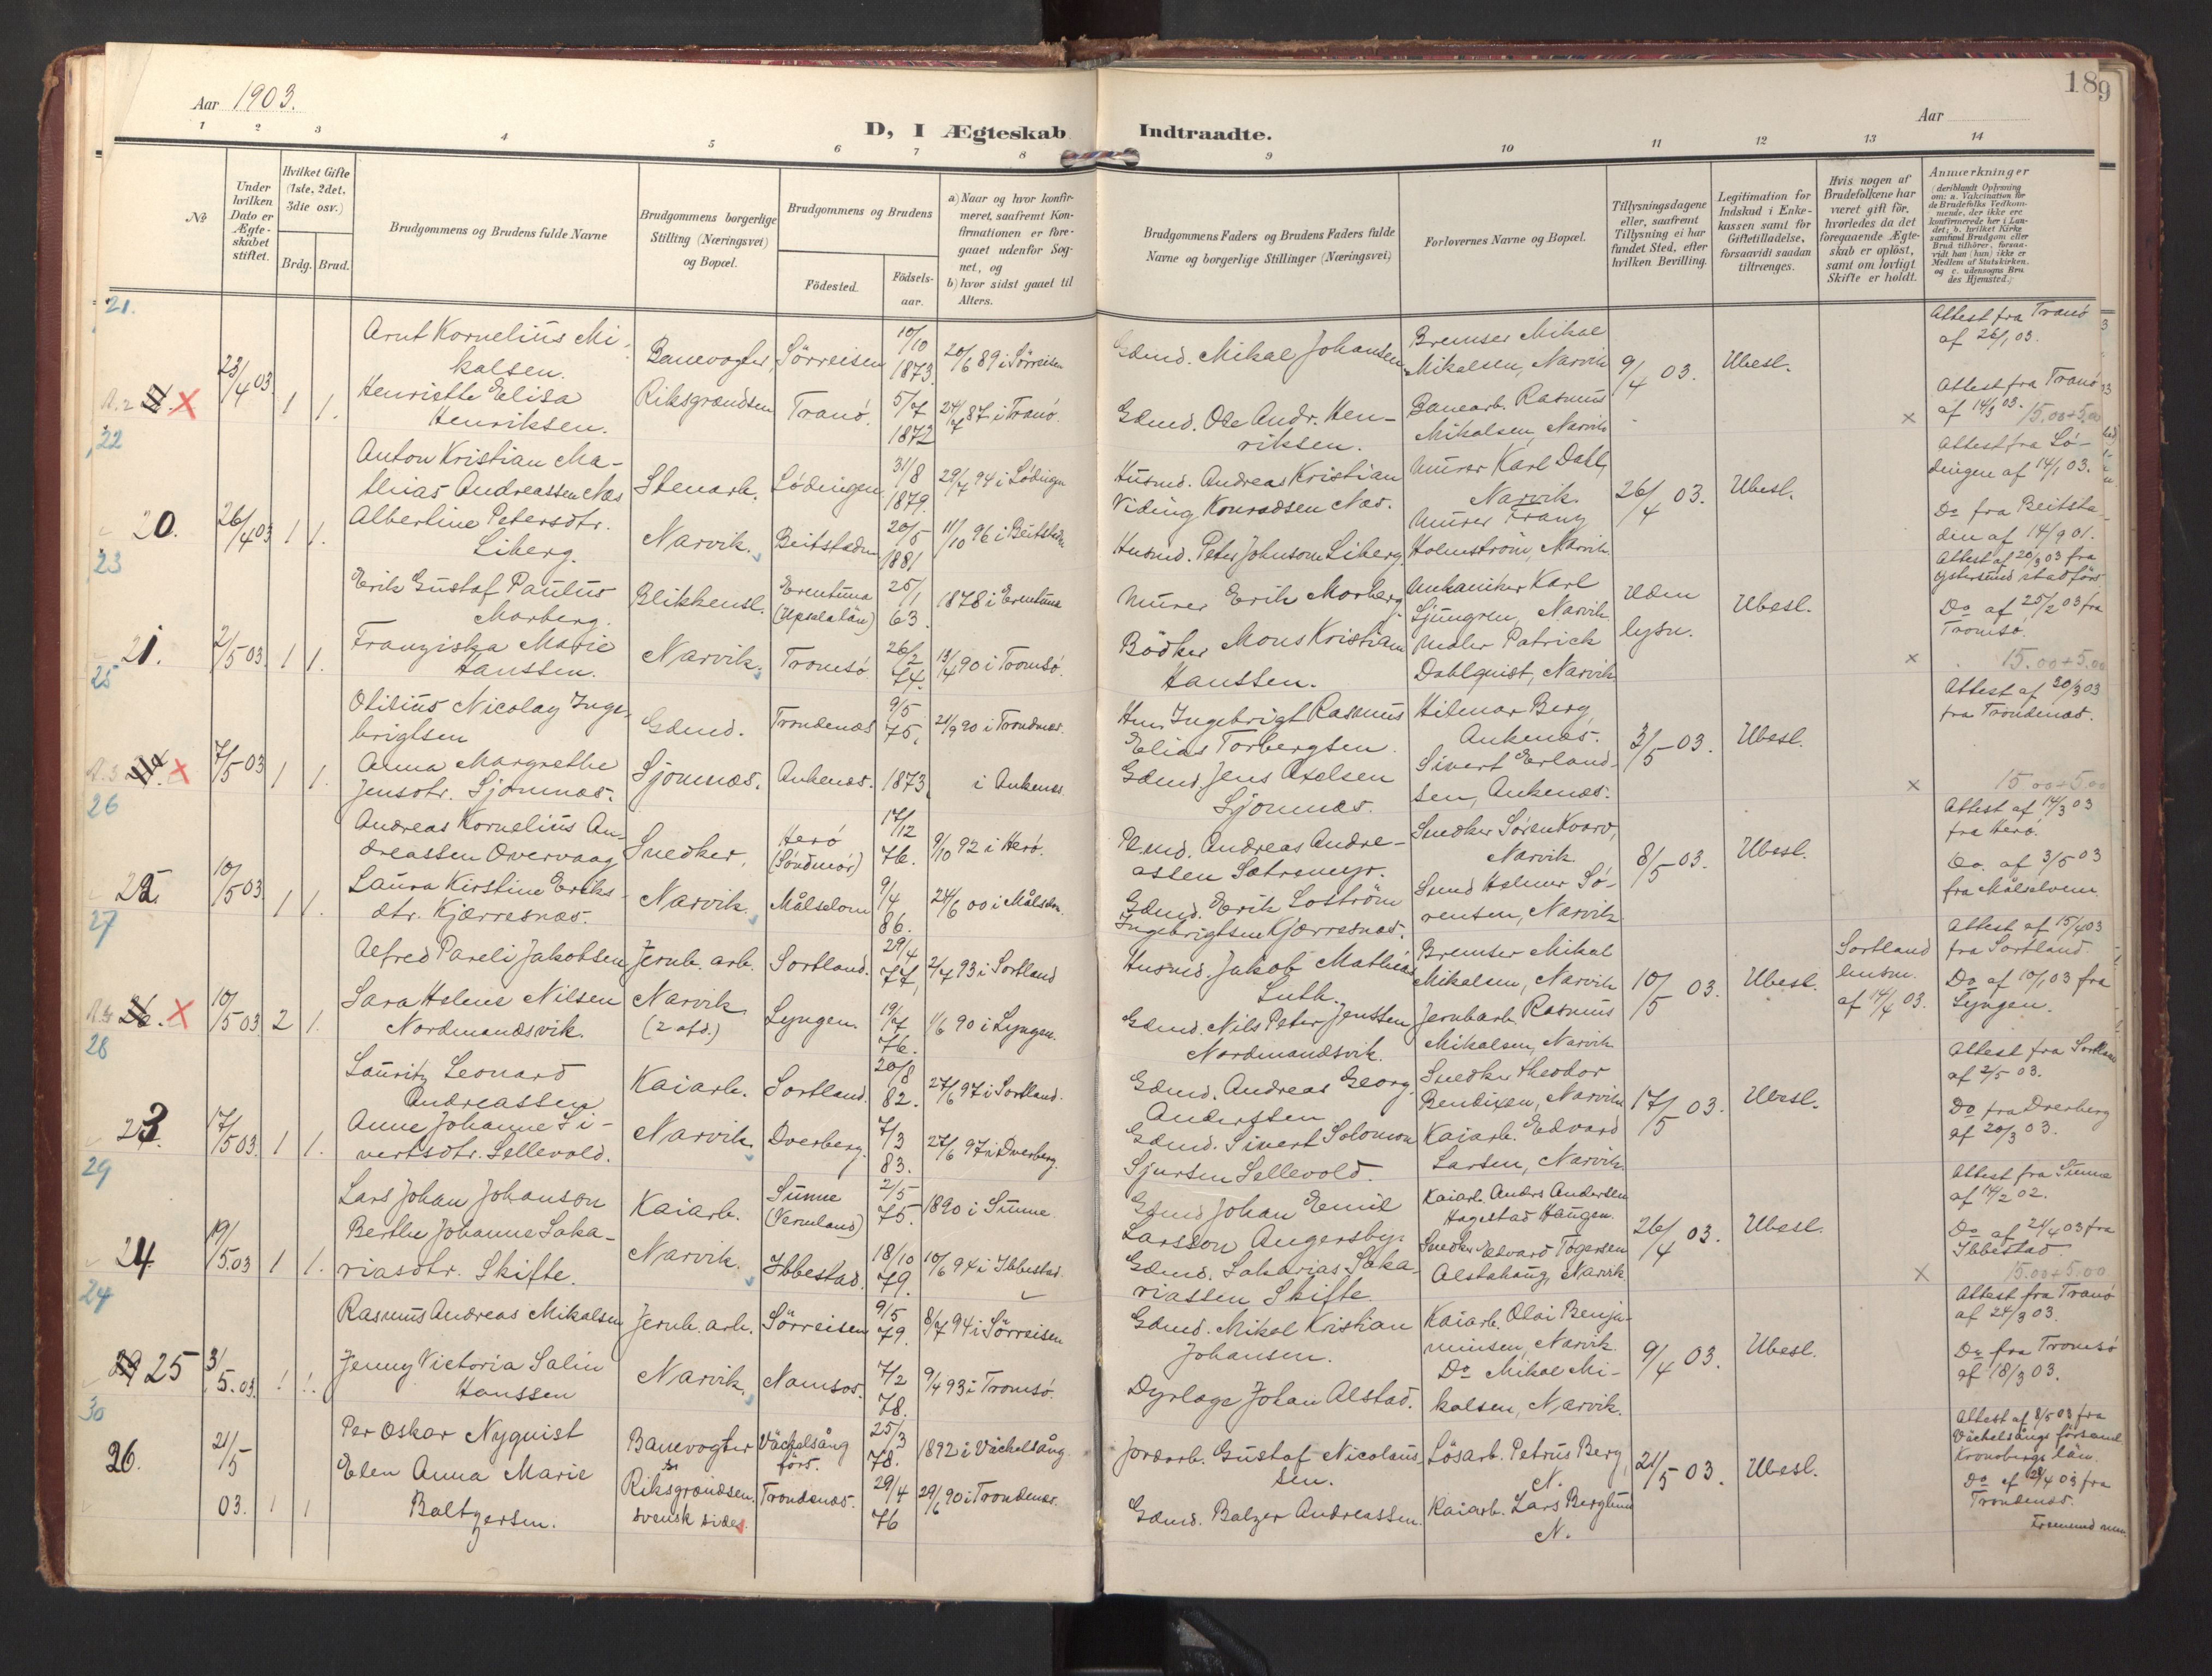 Aar 1903.
D, I Ægteskab Indtraadte.
Aar
189
1 2 3 4 5 6 7 8 9 10 11 12 13 14
No
Under hvilken Dato er Ægteskabet stiftet.
Hvilket Gifte (1ste, 2det, 3die osv.)
Brdg. Brud.
Brudgommens og Brudens fulde Navne
Brudgommens borgerlige Stilling (Næringsvei) og Bopæl.
Brudgommens og Brudens
Födested.
Födselsaar.
a) Naar og hvor konfirmeret, saafremt Konfirmationen er foregaaet udenfor Sognet, og
b) hvor sidst gaaet til Alters.
Brudgommens Faders og Brudens Faders fulde Navne og borgerlige Stillinger (Næringsvei)
Forlovernes Navne og Bopæl.
Tillysningsdagene eller, saafremt Tillysning ei har fundet Sted, efter hvilken Bevilling.
Legitimation for Indskud i Enkekassen samt for Giftetilladelse, forsaavidt saadan tiltrænges.
Hvis nogen af Brudefolkene har været gift för, hvorledes da det foregaaende Ægteskab er oplöst, samt om lovligt Skifte er holdt.
Anmærkninger
(deriblandt Oplysning om: a. Vakcination for de Brudefolks Vedkommende, der ikke ere konfirmerede her i Landet; b. hvilket Kirkesamfund Brudgom eller Brud tilhører, forsaavidt han (hun) ikke er Medlem af Statskirken, og c. udensogns Brudes Hjemsted.)
21.
23/4 03 1 1.
Arnt Kornelius Mikalsen. Banevogter, Sörreisen 10/10 1873. 20/6 89 i Sörreisen
Gdmd. Mikal Johansen Bremser Mikal Mikalsen, Narvik 9/4 03. Ubesl. Attest fra Tranö af 26/1 03.
Henriette Elisa Henriksen. Riksgrændsen Tranö. 5/7 1872 24/7 87 i Tranö.
Gdmd. Ole Andr. Henriksen. Banearb. Rasmus Mikalsen, Narvik × Attest fra Tranö af 14/3 03. 15.00+5.00
22
20. 26/4 03 1 1.
Anton Kristian Mathias Andreassen Næs Stenarb. Lödingen 31/8 1879. 29/7 94 i Lödingen
Husmd. Andreas Kristian Viding Konradsen Næs. Murer Karl Dahl, Narvik. 26/4 03. Ubesl. Attest fra Lödingen af 14/1 03.
Albertine Petersdtr. Liberg. Narvik. Beitstaden 20/5 1881 11/10 96 i Beitstaden
Husmd. Peter Johnsen Liberg. Murer Franz Holmström, Narvik. Do fra Beitstaden af 14/9 01.
23
21. 2/5 03 1 1.
Erik Gustaf Paulus Morberg. Blikkensl. Erentuna (Upsala län) 25/1 63. 1878 i Erentuna
Murer Erik Morberg. Mekaniker Karl Ljungren, Narvik Uden lysn. Ubesl. Attest af 20/3 03 fra Östersund stadförs
Franziska Marie Hanssen. Narvik. Tromsö 26/2 74. 13/4 90 i Tromsö.
Bödker Mons Kristian Hanssen. Maler Patrick Dahlquist, Narvik. × Do af 25/2 03 fra Tromsö. 15.00+5.00
25
7/5 03 1 1.
Otilius Nicolay Ingebrigtsen Gdmd. Trondenæs 9/5 75. 21/9 90 i Trondenæs.
Hm. Ingebrigt Rasmus Elias Torbergsen. Hilmar Berg, Ankenæs. 3/5 03. Ubesl. Attest af 30/3 03 fra Trondenæs.
Anna Margrethe Jensdtr. Sjomnæs. Sjomnæs. Ankenæs. 1873. i Ankenæs
Gdmd. Jens Axelsen Sjomnæs. Sivert Erlandsen, Ankenæs. × 15.00+5.00
26
22. 10/5 03 1 1.
Andreas Kornelius Andreassen Overvaag Snedker, Herö (Söndmör) 17/12 76. 9/10 92 i Herö.
Andreas Andreassen Sætremyr. Snedker Sören Kvarv, Narvik 8/5 03. Ubesl. Attest af 14/3 03 fra Herö.
Laura Kirstine Eriksdtr. Kjærresnæs. Narvik. Målselven 9/4 86. 24/6 00 i Målselven.
Gdmd. Erik Loström Ingebrigtsen Kjærresnæs. Smed Helmer Sörensen, Narvik. Do. af 3/5 03 fra Målselven.
27
10/5 03 2 1.
Alfred Pareli Jakobsen Jernb. arb. Sortland. 29/4 77. 2/7 93 i Sortland
Husmd. Jakob Mathias Luth. Bremser Mikal Mikalsen, Narvik 10/5 03. Ubesl. Sortland lensm. af 14/4 03. Attest af 15/4 03 fra Sortland.
Sara Helene Nilsen Nordmandsvik. Narvik (2 afd.) Lyngen. 19/7 76. 1/6 90 i Lyngen.
Gdmd. Nils Peter Jenssen Nordmandsvik. Jernbarb. Rasmus Mikalsen, Narvik Do af 10/1 03 fra Lyngen.
28
23. 17/5 03. 1 1.
Lauritz Leonard Andreassen Kaiarb. Sortland. 20/8 82. 27/6 97 i Sortland.
Gdmd. Andreas Georg Anderssen Snedker Theodor Bendixen, Narvik 17/5 03. Ubesl. Attest fra Sortland af 2/5 03.
Anne Johanne Sivertsdtr. Sellevold. Narvik. Dverberg. 7/3 83. 27/6 97 i Dverberg.
Gdmd. Sivert Solomon Sjursen Sellevold. Kaiarb. Edvard Larsen, Narvik. Do fra Dverberg af 20/3 03.
29
24 19/5.03 1 1.
Lars Johan Johanson Kaiarb. Sunne (Vermland) 2/5 75. 1890 i Sunne
Gdmd Johan Emil Larsson Angersby. Kaiarb. Anders Andersen Hagestad Haugen. 26/4 03. Ubesl. Attest fra Sunne af 14/2 02.
Berthe Johanne Sakariasdtr. Skifte. Narvik. Ibbestad. 18/10 79. 10/6 94 i Ibbestad.
Gdmd. Sakarias Sakariassen Skifte. Snedker Edvard Togersen Alstahaug, Narvik. × Do af 21/4 03 fra Ibbestad. 15.00+5.00
24
25 3/5.03. 1 1.
Rasmus Andreas Mikalsen Jernb. arb. Sörreisen 9/5 79. 8/7 94 i Sörreisen
Gdmd. Mikal Kristian Johansen. Kaiarb. Olai Benjaminsen, Narvik. 9/4 03. Ubesl. Attest fra Tranö af 24/3 03.
Jenny Victoria Salin Hanssen Narvik. Namsos. 7/2 78. 9/4 93 i Tromsö.
Dyrlæge Johan Alstad. Do Mikal Mikalsen, Narvik. Do fra Tromsö af 18/3 03.
30
26. 21/5 03. 1 1
Per Oskar Nyquist Banevogter Väckelsång förs. 25/3 78. 1892 i Väckelsång.
Jordarb. Gustaf Nicolaussen. Lösarb. Petrus Berg, N. 21/5 03. Ubesl. Attest af 8/5 03 fra Väckelsångs församl. Kronobergs län.
Elen Anna Marie Baltzersen. Riksgrændsen. svensk side. Trondenæs. 29/4 76 29/6 90 i Trondenæs.
Gdmd. Balzer Andreassen. Kaiarb. Lars Berglund N. Do af 28/4 03 fra Trondenæs.